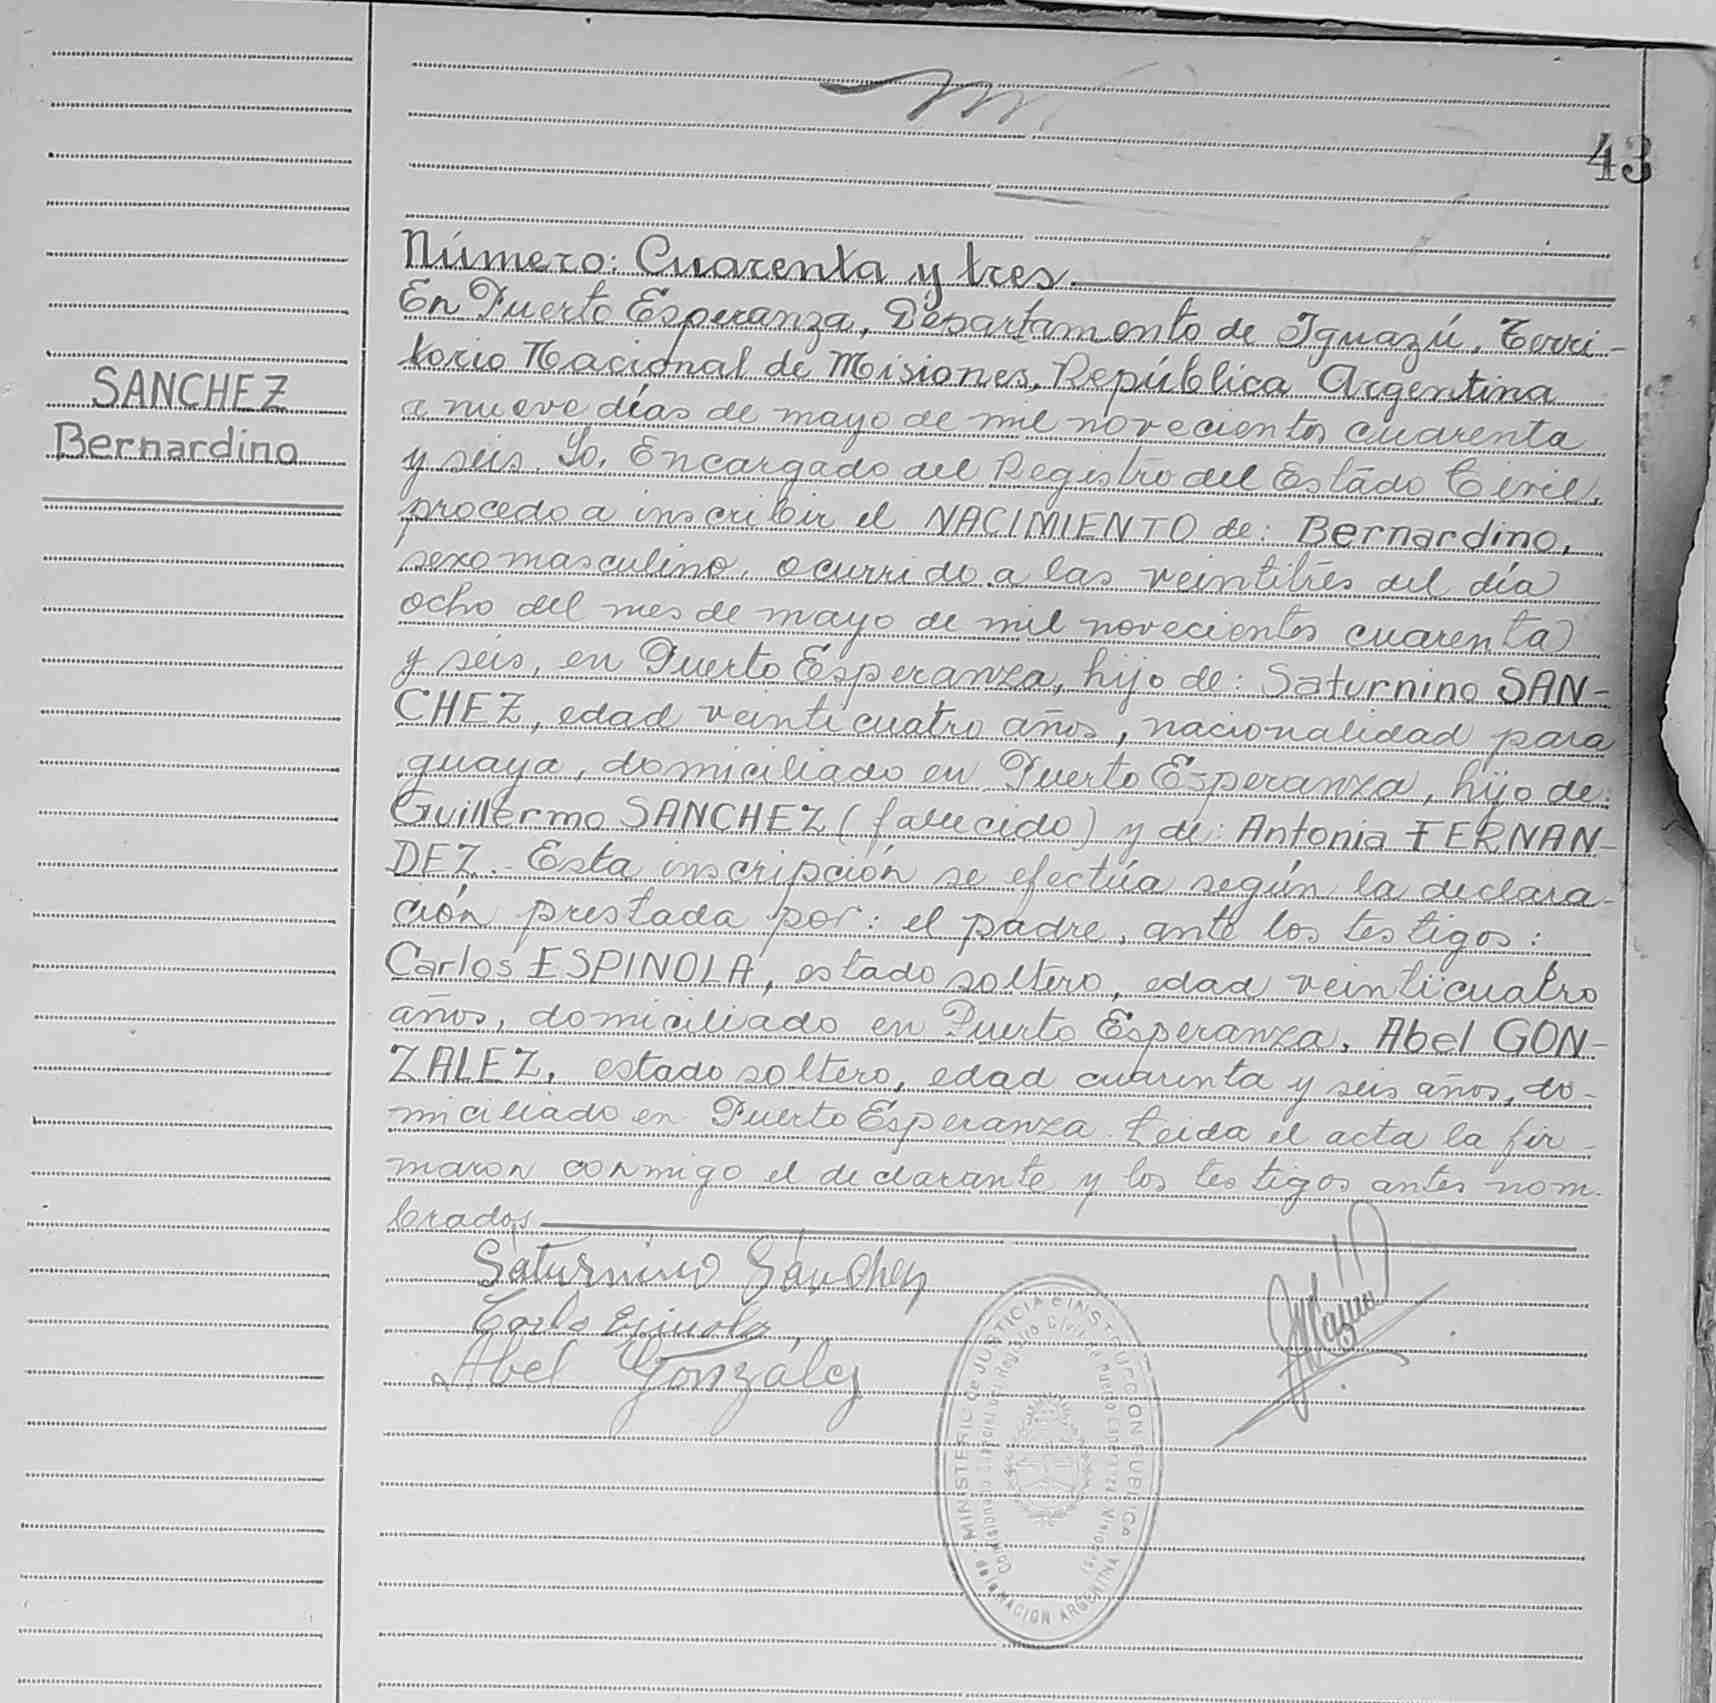 43
Número: Cuarenta y tres.
En Puerto Esperanza, Departamento de Iguazú, Terri-
torio Nacional de Misiones, República Argentina
SANCHEZ
a nueve días de mayo de mil novecientos cuarenta
Bernardino
y seis. Yo, Encargado del Registro del Estado Civil,
procedo a inscribir el NACIMIENTO de: Bernardino,
sexo masculino, ocurrido a las veintitrés del día
ocho del mes de mayo de mil novecientos cuarenta
y seis, en Puerto Esperanza, hijo de: Saturnino SAN-
CHEZ, edad veinticuatro años, nacionalidad para
guaya, domiciliado en Puerto Esperanza, hijo de:
Guillermo SANCHEZ (fallecido) y de: Antonia FERNAN-
DEZ. Esta inscripción se efectúa según la declara-
ción prestada por: el padre, ante los testigos:
Carlos ESPINOLA, estado soltero, edad veinticuatro
años, domiciliado en Puerto Esperanza, Abel GON-
ZALEZ, estado soltero, edad cuarenta y seis años, do-
miciliado en Puerto Esperanza. Leida el acta la fir-
maron conmigo el declarante y los testigos antes nom-
brados
Saturnino Sánchez
Carlo Espinola
Abel González
MINISTERIO de JUSTICIA e INSTRUCCION PUBLICA
NACION ARGENTINA